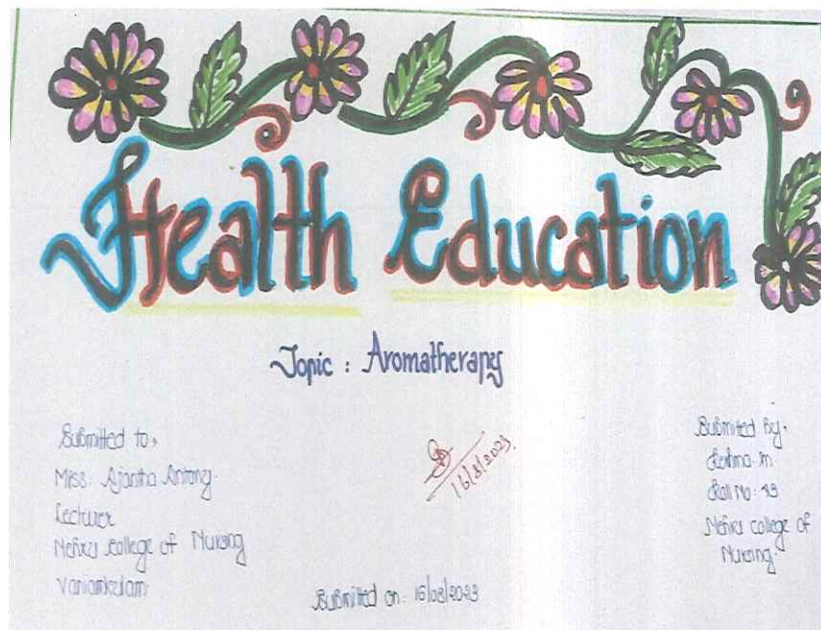 Health Education
Topic : Aromatherapy
Submitted to,
Miss. Ajantha Antony.
Lecturer
Nehru college of Nursing
Vaniamkulam
16/8/2023
Submitted By,
Reshma. M
Roll No:
Nehru college of
Nursing.
Submitted on: 16/08/2023